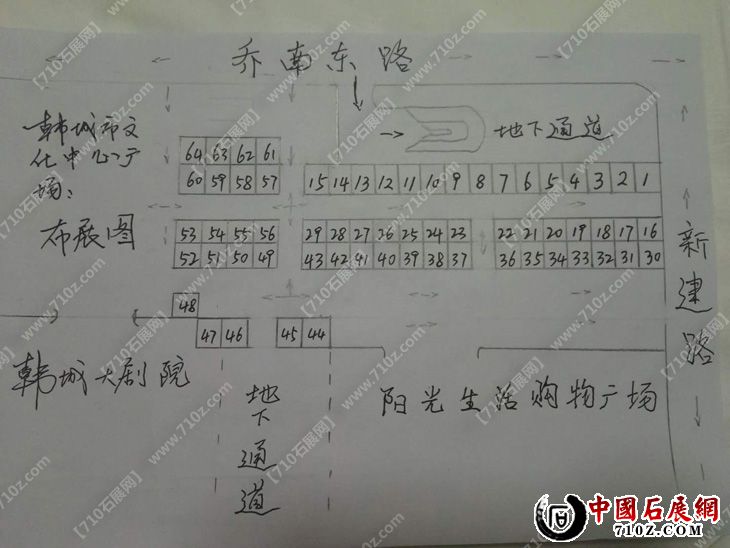 乔南东路
韩城市文
化中心广
场:
布展图
地下通道
64 63 62 61
60 59 58 57
15 14 13 12 11 10 9 8 7 6 5 4 3 2 1
53 54 55 56
52 51 50 49
29 28 27 26 25 24 23
43 42 41 40 39 38 37
22 21 20 19 18 17 16
36 35 34 33 32 31 30
新建路
48
47 46
45 44
韩城大剧院
地下通道
阳光生活购物广场
【710石展网】
www.710z.com
中國石展網
710Z.COM